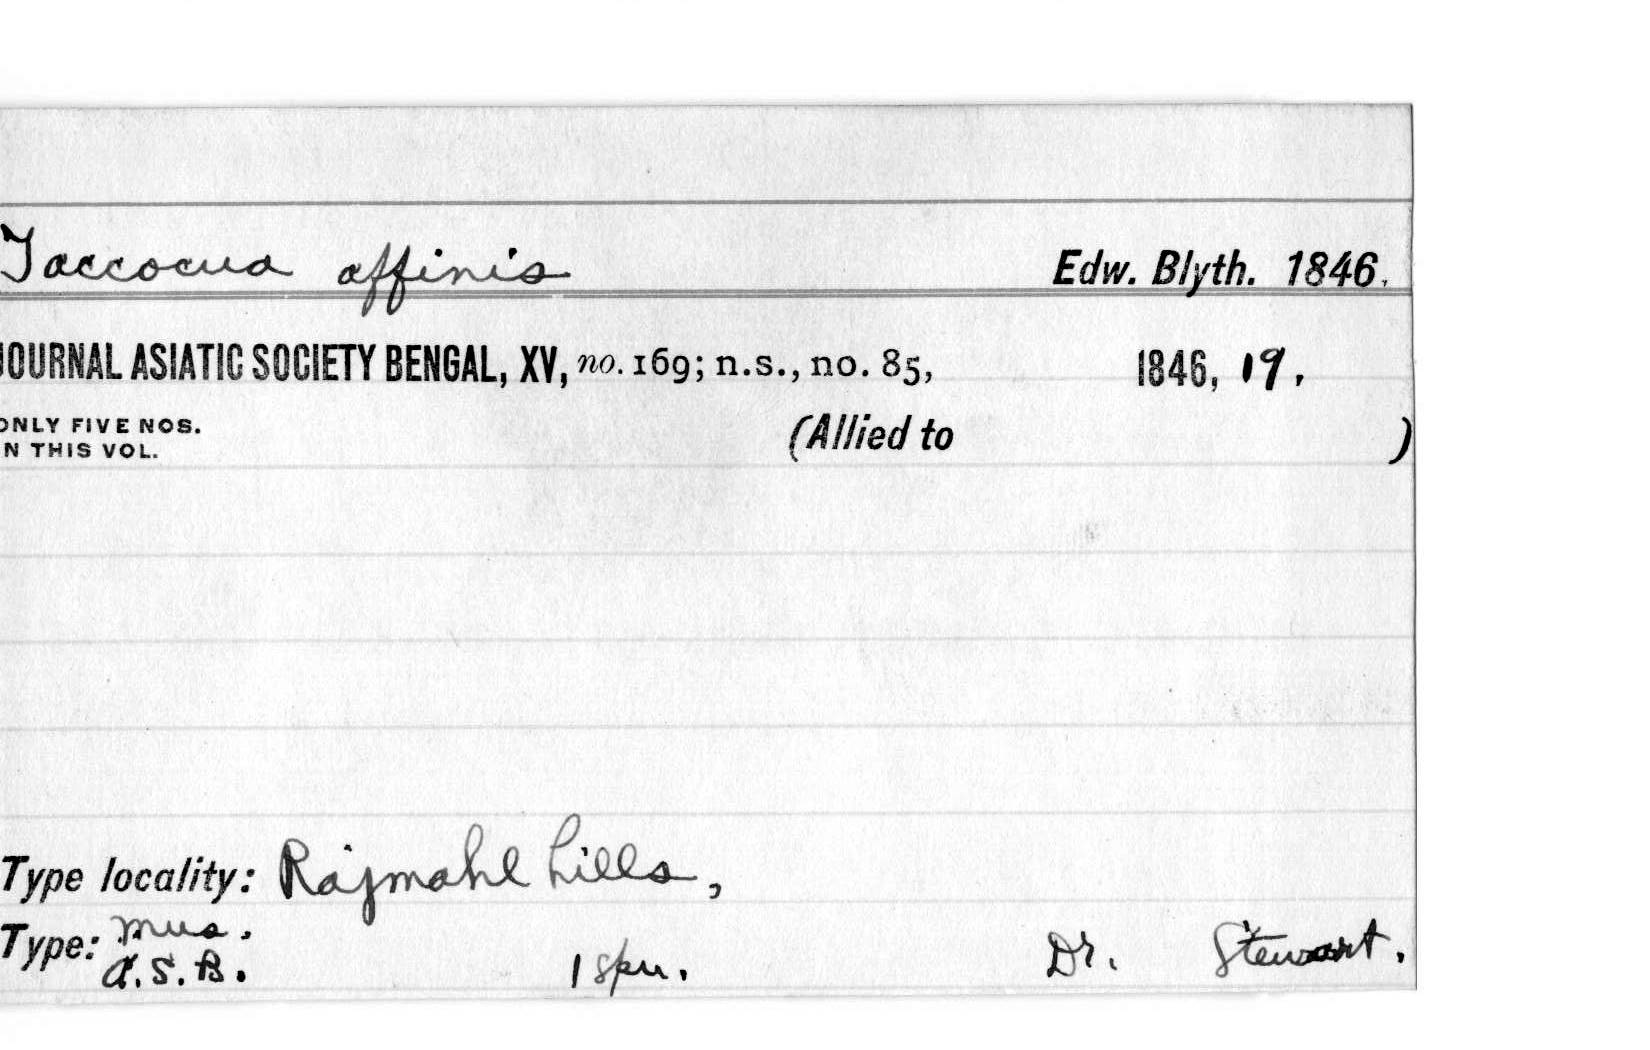 Taccocua affinis Edw. Blyth. 1846.
JOURNAL ASIATIC SOCIETY BENGAL, XV, no. 169; n.s., no. 85, 1846, 19.
ONLY FIVE NOS. (Allied to )
IN THIS VOL.
Type locality: Rajmahl hills,
Type: Mus. A.S.B. 1 spn. Dr. Stewart.